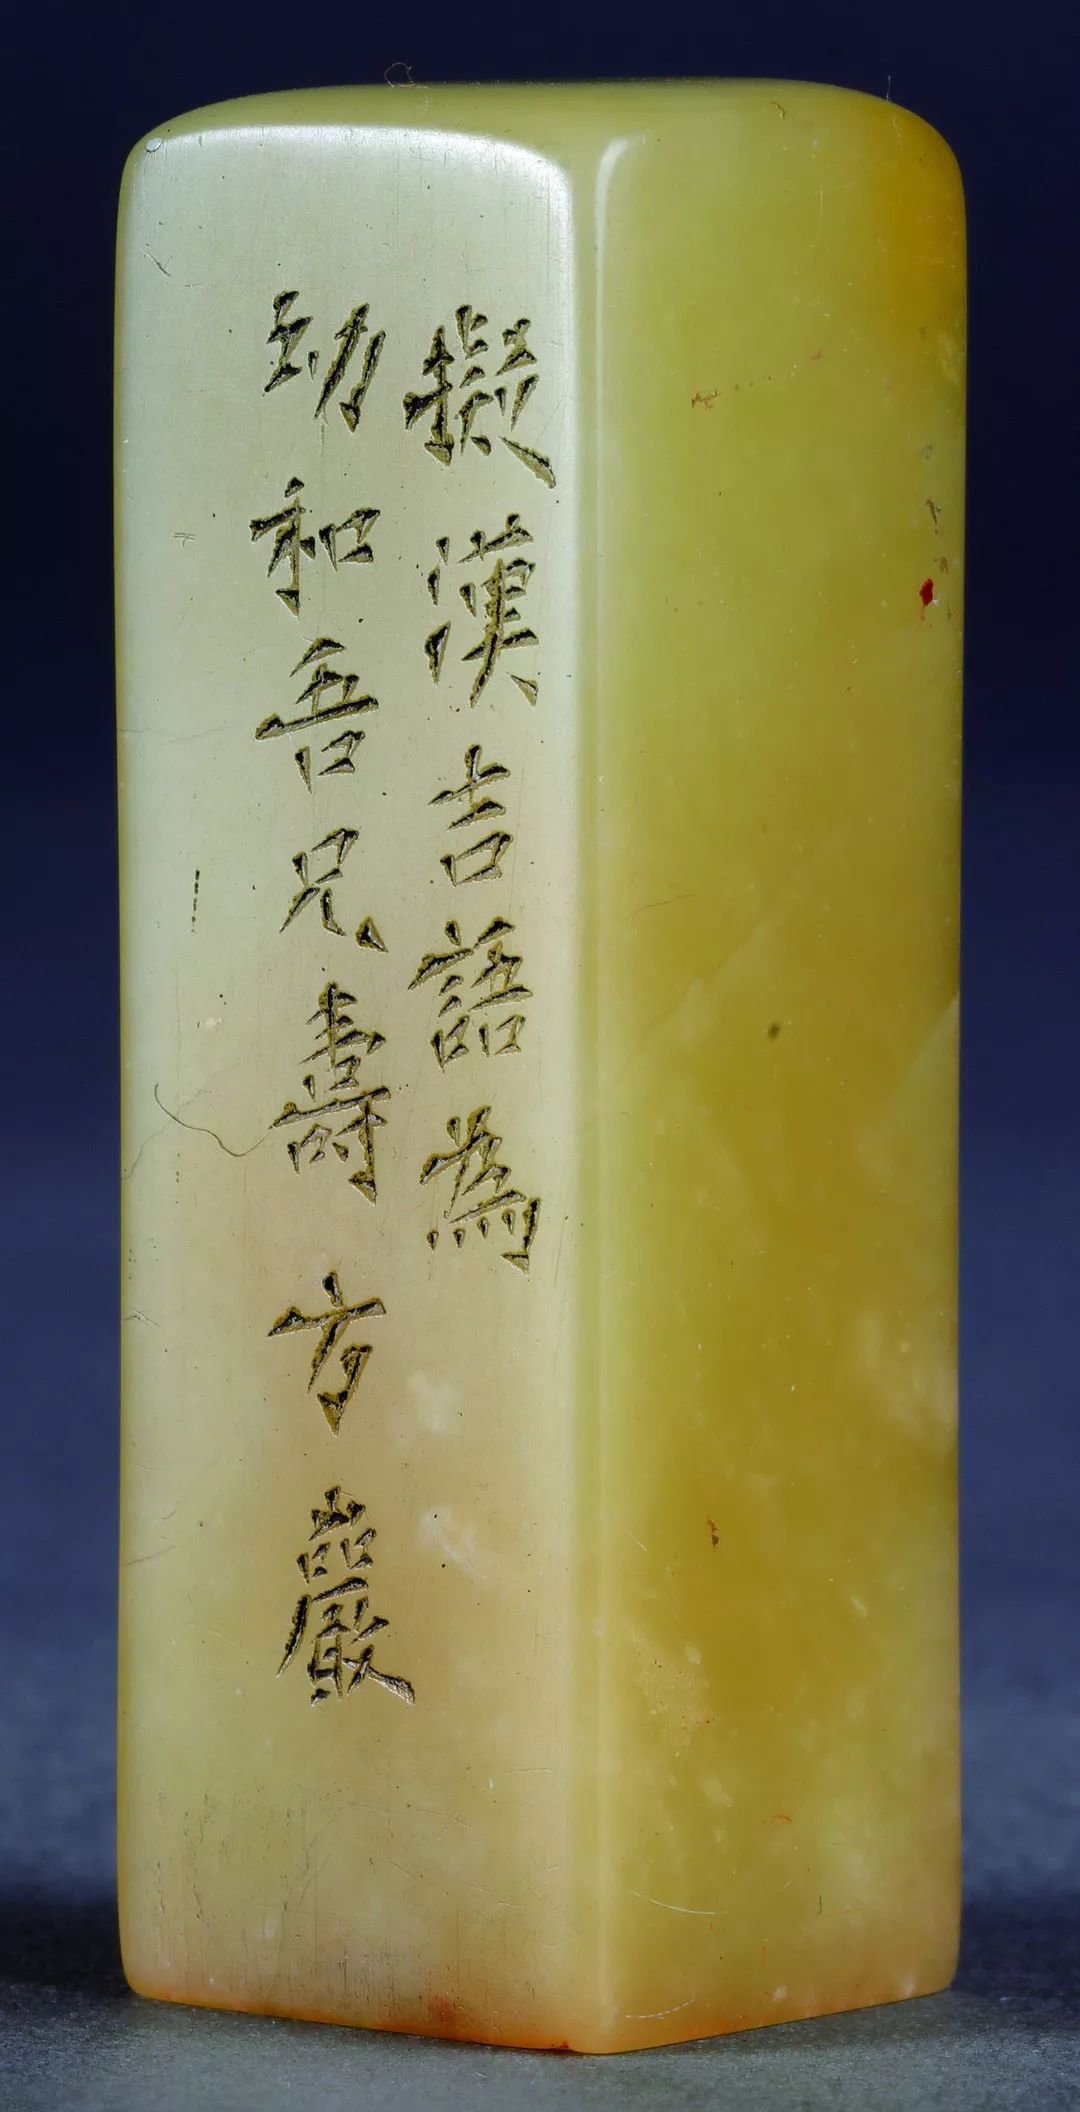 擬漢吉語為
幼和吾兄壽 方巖